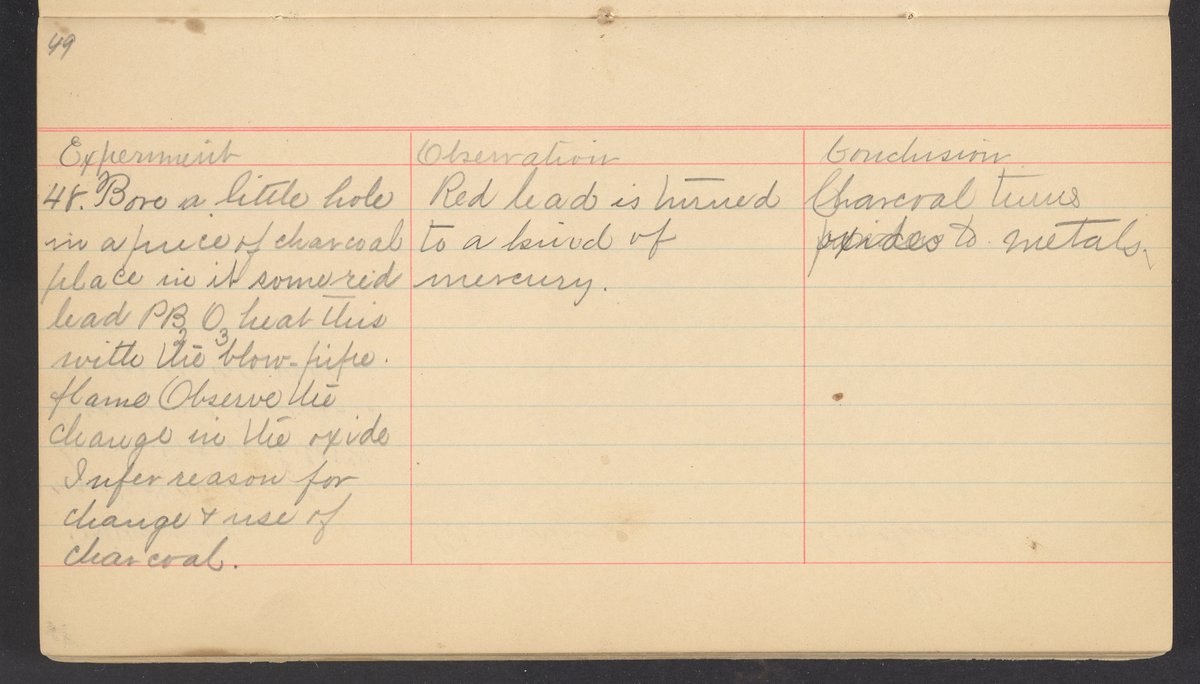 49
Experiment
48. Bore a little hole
in a piece of charcoal
place in it some red
lead PB2 O3 heat this
with the blow-pipe.
flame Observe the
change in the oxide
Infer reason for
change + use of
charcoal.
Observation
Red lead is turned
to a kind of
mercury.
Conclusion
Charcoal turns
oxides to metals.